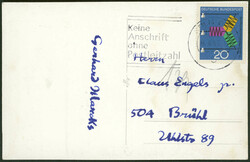 DEUTSCHE BUNDESPOST
20
Keine
Anschrift
ohne
Postleitzahl
Gerhard Marcks
Herrn
Claus Engels jr.
504 Brühl
Uhlstr 89